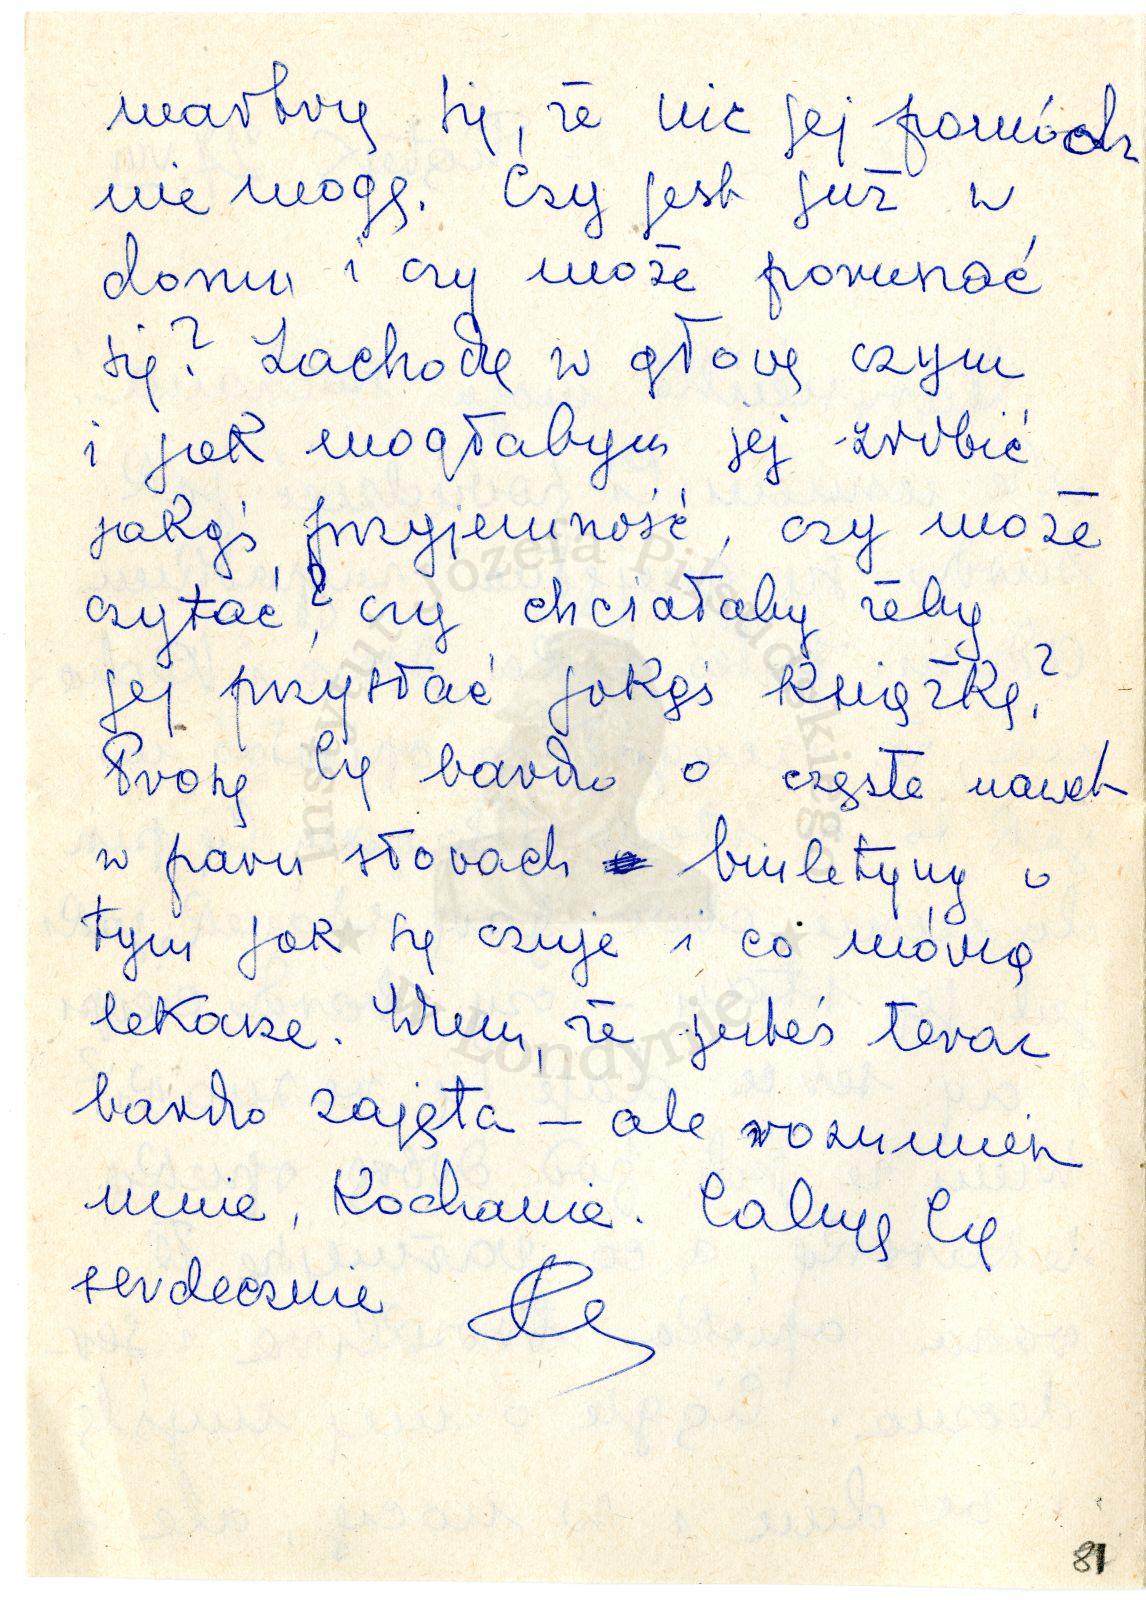 martwię się, że nic jej pomódz
nie mogę. Czy jest już w
domu i czy może poruszać
się? Zachodzę w głowę czym
i jak mogłabym jej zrobić
jakąś przyjemność, czy może
czytać? czy chciałaby żeby
jej przysłać jakąś książkę?
Proszę Cię bardzo o częste nawet
w paru słowach biuletyny o
tym jak się czuje i co mówią
lekarze. Wiem, że jesteś teraz
bardzo zajęta — ale rozumiesz
mnie, Kochanie. Całuję Cię
serdecznie
81
Instytut Józefa Piłsudskiego
w Londynie